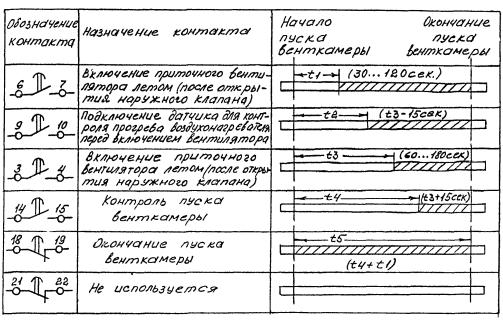 Обозначение
контакта
Назначение контакта
Начало
пуска
венткамеры
Окончание
пуска
венткамеры
6 7
Включение приточного венти-
лятора летом (после откры-
тия наружного клапана)
t1 (30...120сек.)
9 10
Подключение датчика для конт-
роля прогрева воздухонагревателя
перед включением вентилятора
t2 (t3-15сек)
3 4
Включение приточного
вентилятора летом (после откры
тия наружного клапана)
t3 (60...180сек)
14 15
Контроль пуска
венткамеры
t4 (t3+15сек)
18 19
Окончание пуска
венткамеры
t5
(t4+t1)
21 22
Не используется